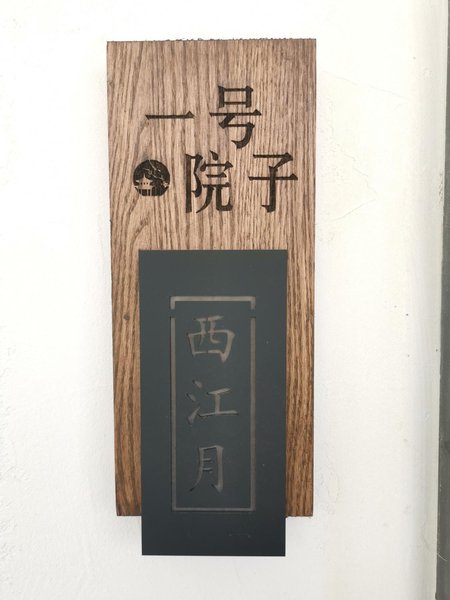 一号
院子
西江月